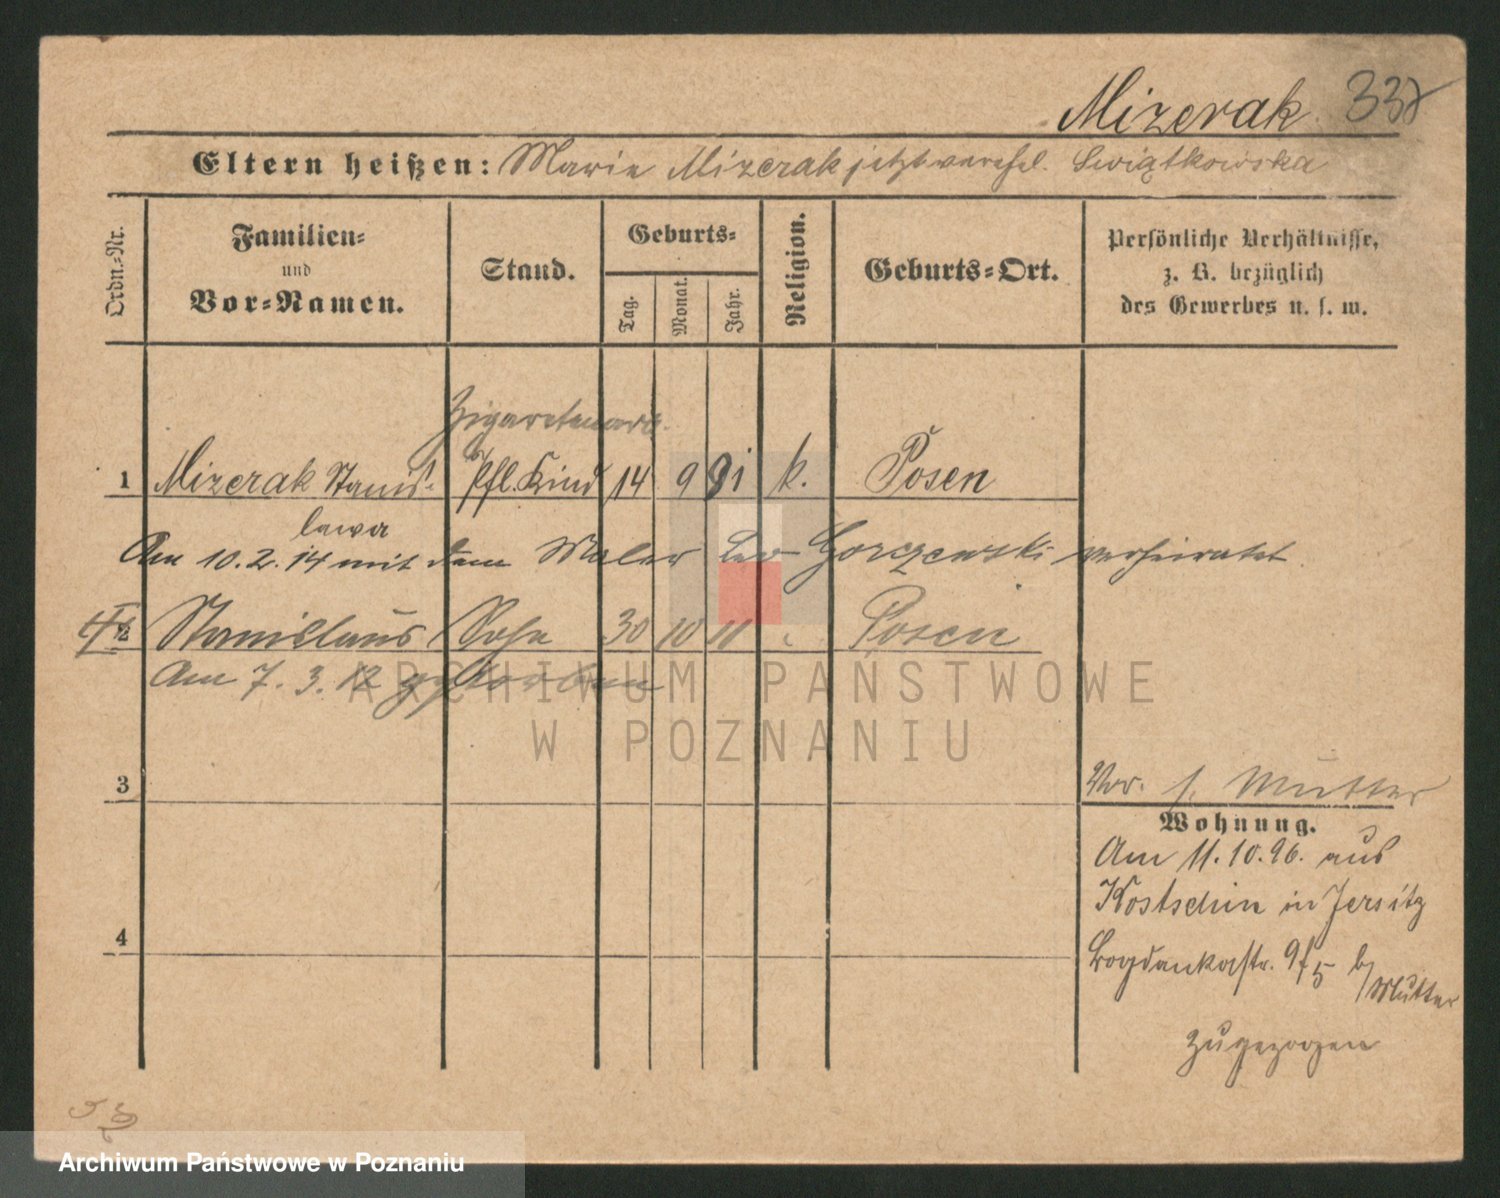 Mizerak 337
Eltern heißen: Marie Mizerak jetzt verehel. Swiątkowska
Ordn.-Nr.
Familien-
und
Vor-Namen.
Stand.
Geburts-
Tag.
Monat.
Jahr.
Religion.
Geburts-Ort.
Persönliche Verhältnisse,
z. B. bezüglich
des Gewerbes u. s. w.
Zigarettenarb.
1 Mizerak Stanis- Pfl. Kind 14 9 91 k. Posen
lawa
Am 10.2.14 mit dem Maler Leo Gorczewski verheiratet
2 Stanislaus Sohn 30 10 11 Posen
Am 7.3.12 gestorben
3
4
Vor. s. Mutter
Wohnung.
Am 11.10.96. aus
Kostschin in Jersitz
Bogdankastr. 9 b/Mutter
zugezogen
ARCHIWUM PAŃSTWOWE
W POZNANIU
Archiwum Państwowe w Poznaniu